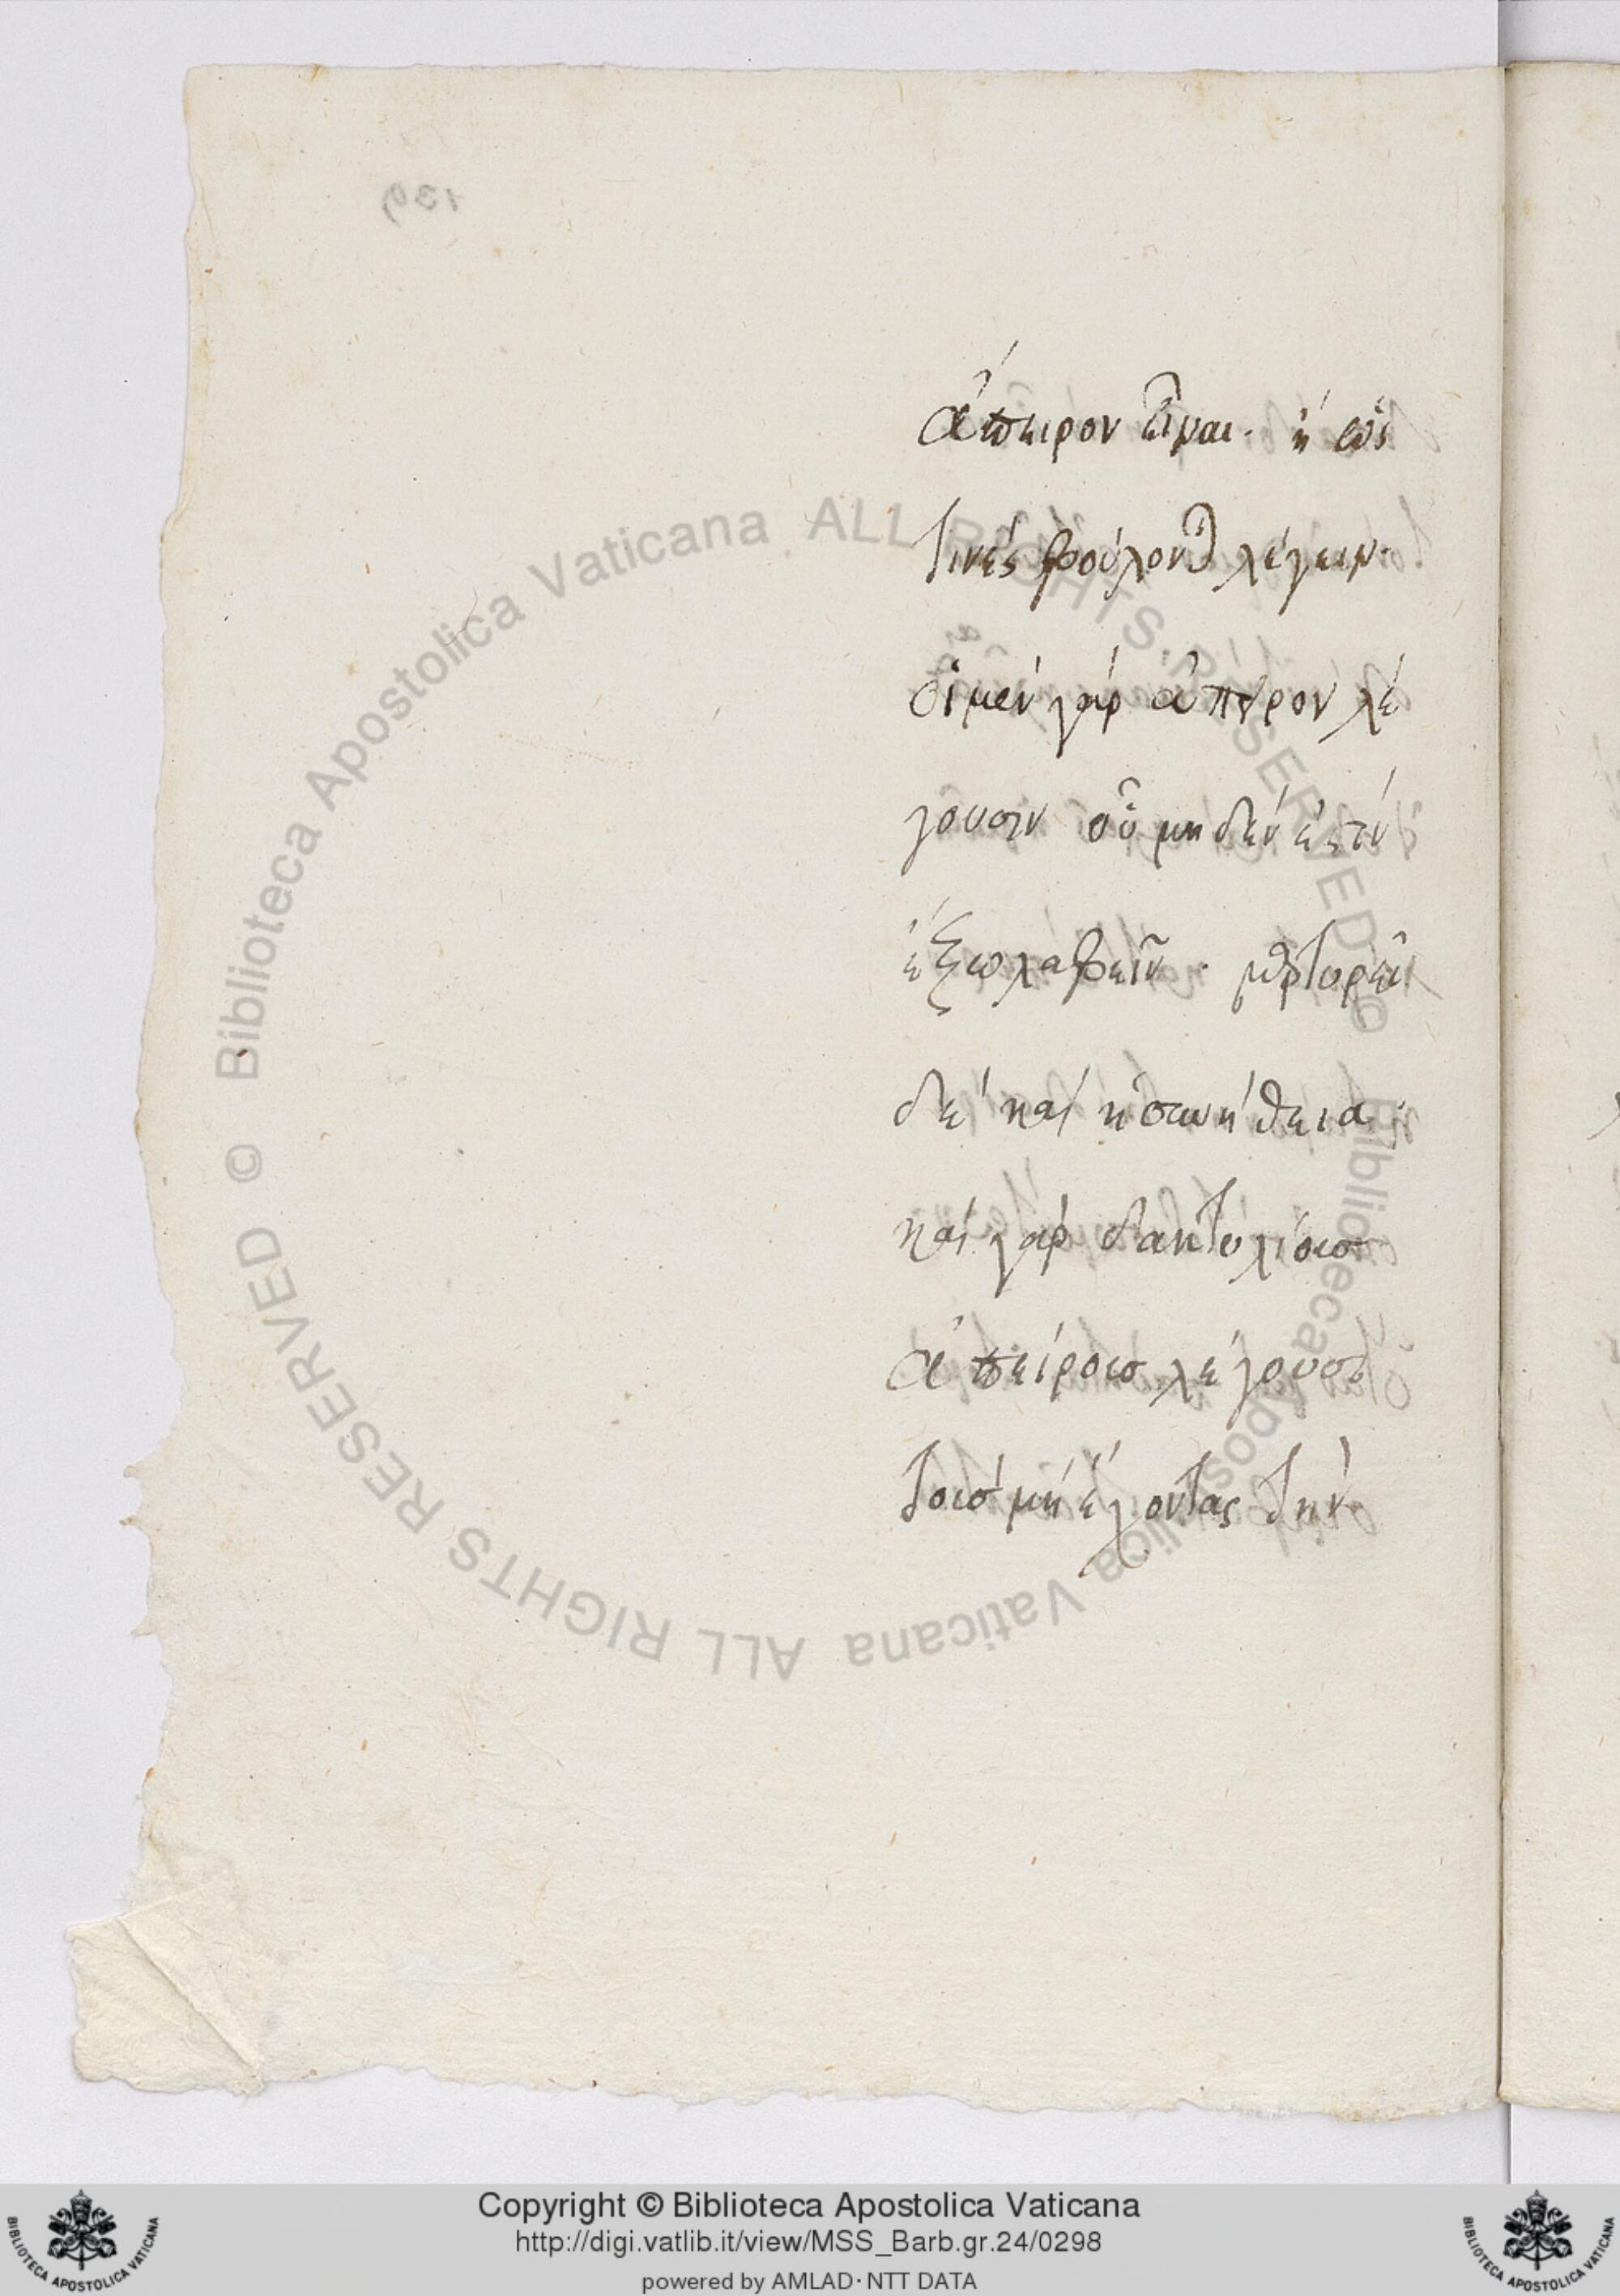 139
ἄπειρον εἶναι· ἢ ὥς
τινές βούλονται λέγειν·
οἱ μὲν γὰρ ἄπειρον λέ
γουσιν οὗ μηδέν ἐστιν
ἔξω λαβεῖν· μαρτυρεῖ
δὲ καὶ ἡ συνήθεια·
καὶ γὰρ δακτυλίους
ἀπείρους λέγουσι
τοὺς μὴ ἔχοντας τὴν
© Biblioteca Apostolica Vaticana ALL RIGHTS RESERVED © Biblioteca Apostolica Vaticana ALL RIGHTS RESERVED
Copyright © Biblioteca Apostolica Vaticana
http://digi.vatlib.it/view/MSS_Barb.gr.24/0298
powered by AMLAD·NTT DATA
BIBLIOTECA APOSTOLICA VATICANA
BIBLIOTECA APOSTOLICA VATICANA